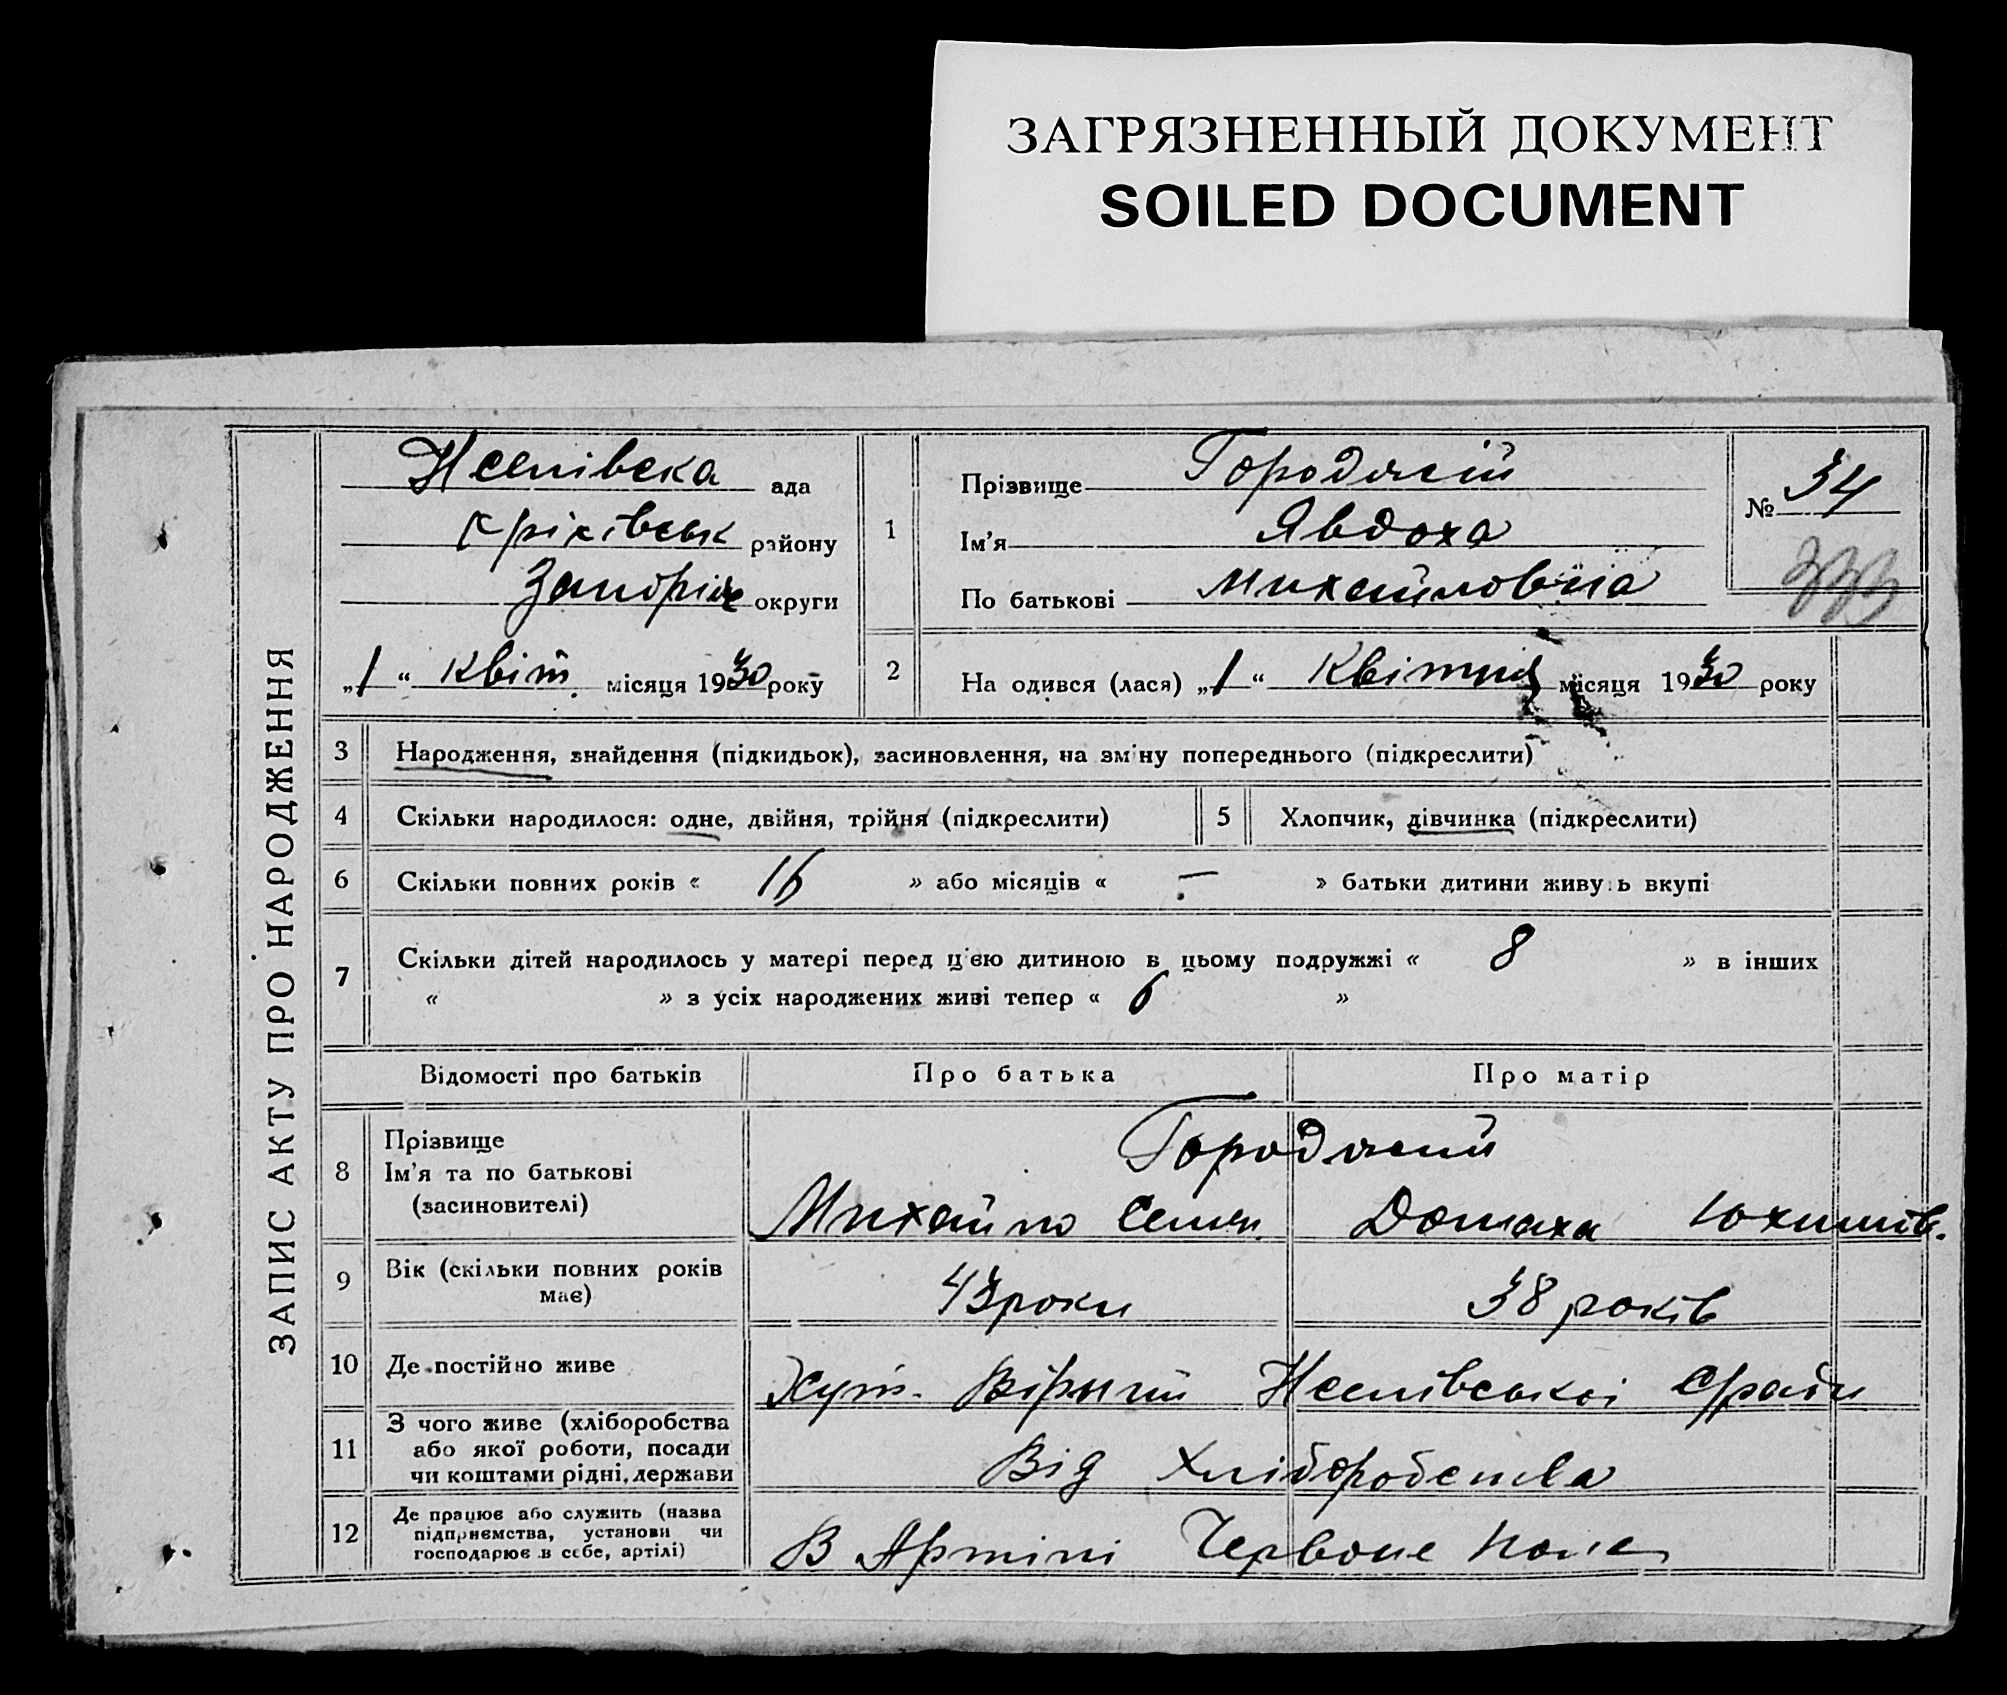 ЗАГРЯЗНЕННЫЙ ДОКУМЕНТ
SOILED DOCUMENT
ЗАПИС АКТУ ПРО НАРОДЖЕННЯ
ада
району
округи
„1“ квіт. місяця 1930 року
1
Прізвище
Ім'я Явдоха
По батькові Михайловна
№ 34
333
2
На одився (лася) „1“ Квітня місяця 1930 року
3 Народження, знайдення (підкидьок), засиновлення, на зміну попереднього (підкреслити)
4 Скільки народилося: одне, двійня, трійня (підкреслити)
5 Хлопчик, дівчинка (підкреслити)
6 Скільки повних років « 16 » або місяців « — » батьки дитини живуть вкупі
7 Скільки дітей народилось у матері перед цією дитиною в цьому подружжі « 8 » в інших
« » з усіх народжених живі тепер « 6 »
Відомості про батьків Про батька Про матір
8 Прізвище
Ім'я та по батькові
(засиновителі)
Михайло Семен. Домаха Юхимів.
9 Вік (скільки повних років має)
43 роки 38 років
10 Де постійно живе
Хут. С/ради
11 З чого живе (хліборобства
або якої роботи, посади
чи коштами рідні, держави
Від Хліборобства
12 Де працює або служить (назва
підприємства, установи чи
господарює в себе, артілі)
В Артілі Червоне Поле